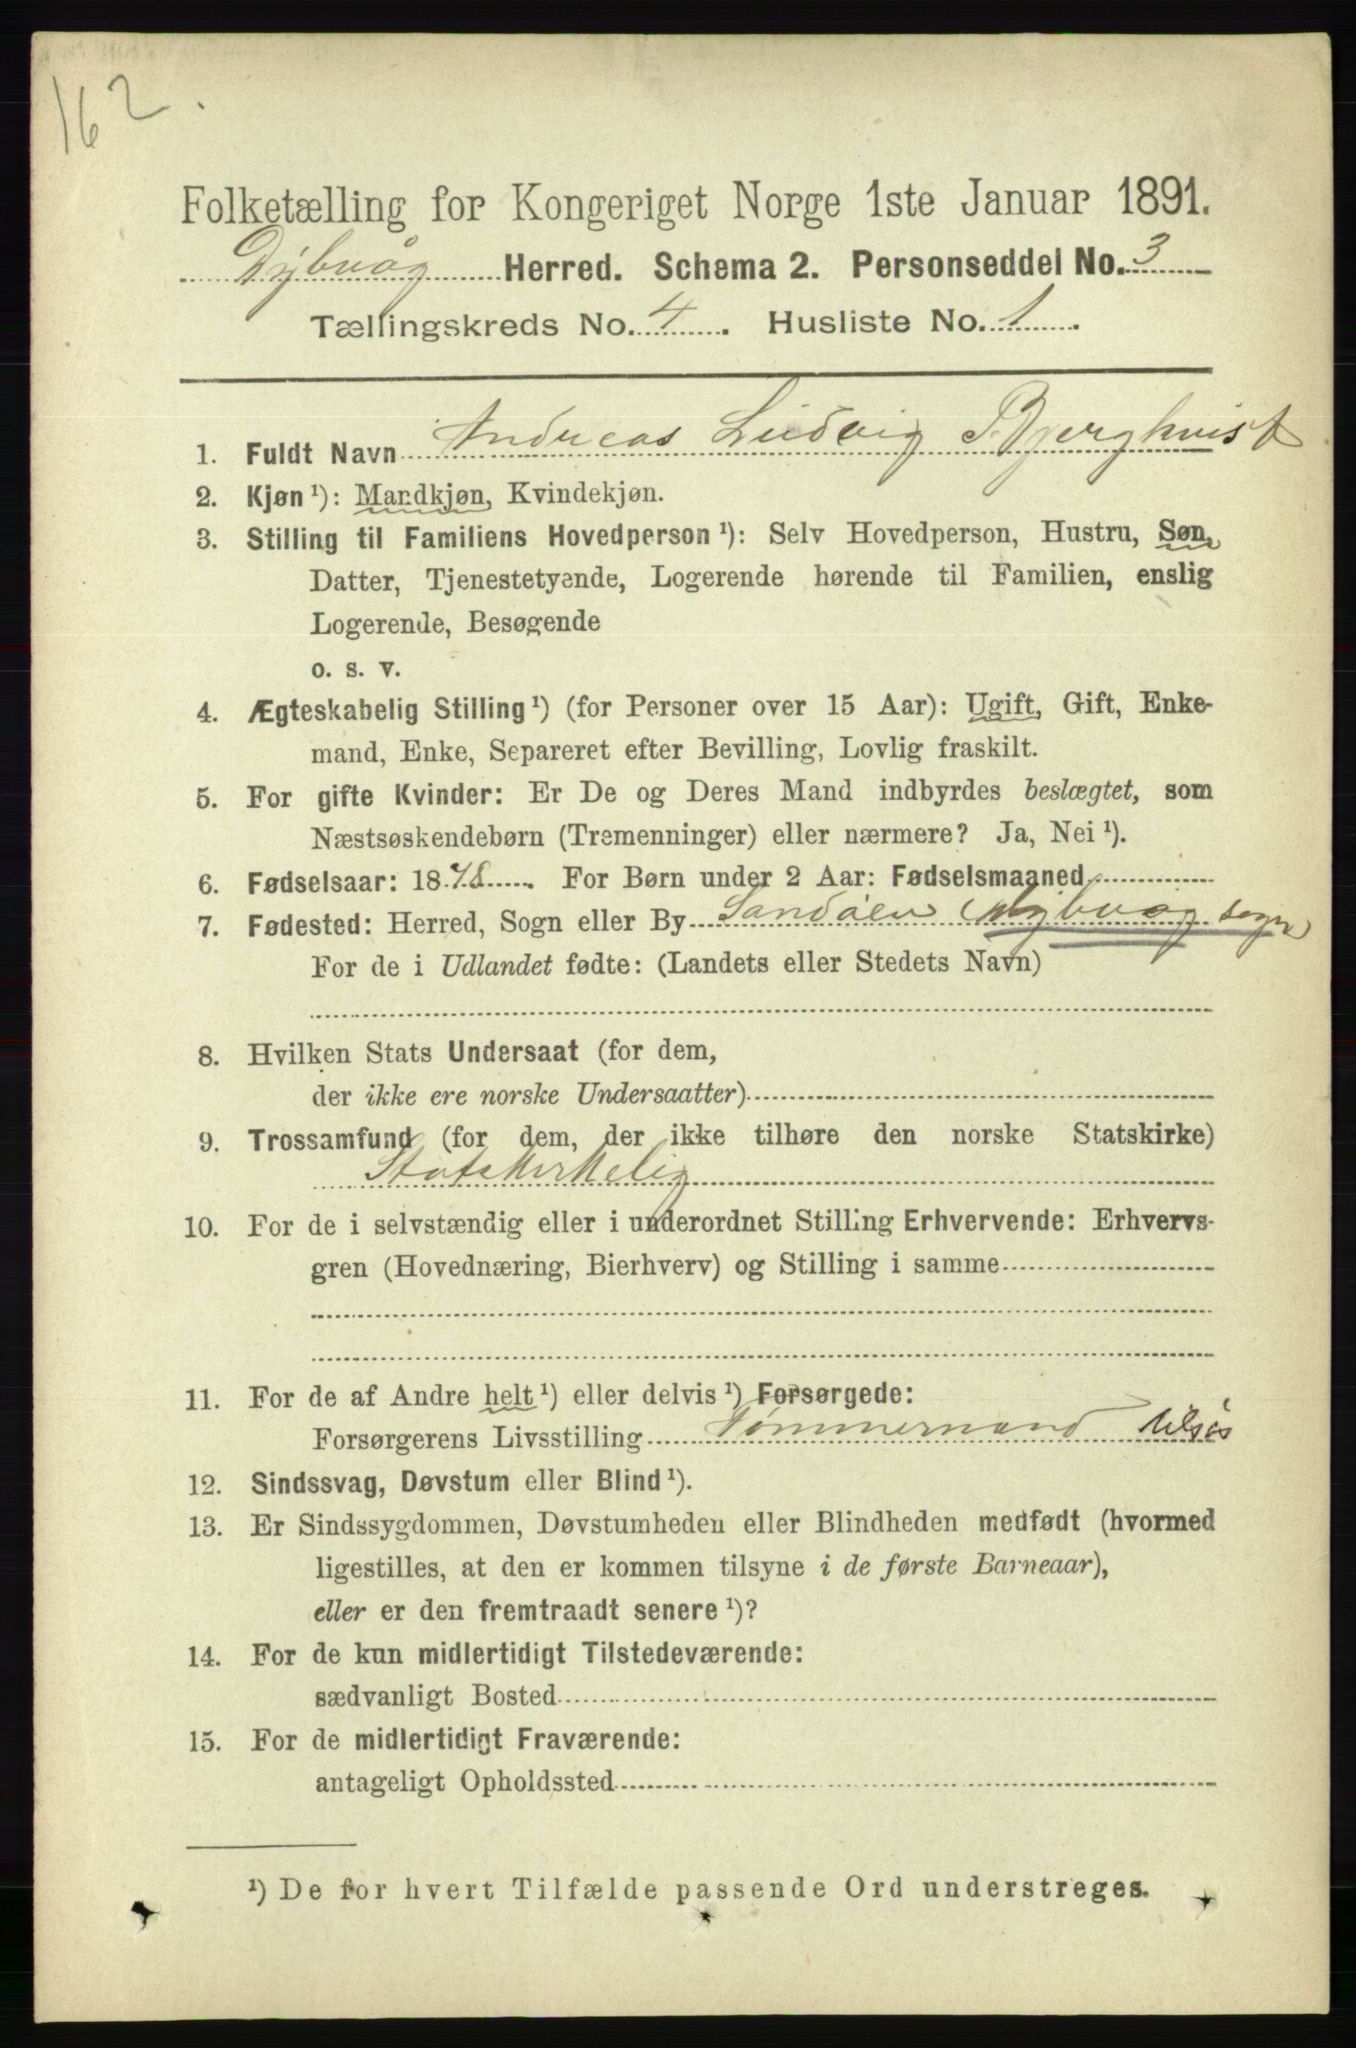 162.
Folketælling for Kongeriget Norge 1ste Januar 1891.
Dybvåg Herred. Schema 2. Personseddel No. 3
Tællingskreds No. 4. Husliste No. 1.
1. Fuldt Navn Andreas Ludvig Bjerghvist
2. Kjøn ¹): Mandkjøn, Kvindekjøn.
3. Stilling til Familiens Hovedperson ¹): Selv Hovedperson, Hustru, Søn,
Datter, Tjenestetyende, Logerende hørende til Familien, enslig
Logerende, Besøgende
o. s. v.
4. Ægteskabelig Stilling ¹) (for Personer over 15 Aar): Ugift, Gift, Enke-
mand, Enke, Separeret efter Bevilling, Lovlig fraskilt.
5. For gifte Kvinder: Er De og Deres Mand indbyrdes beslægtet, som
Næstsøskendebørn (Tremenninger) eller nærmere? Ja, Nei ¹).
6. Fødselsaar: 1878. For Børn under 2 Aar: Fødselsmaaned
7. Fødested: Herred, Sogn eller By Sandøen (Dybvåg sogn)
For de i Udlandet fødte: (Landets eller Stedets Navn)
8. Hvilken Stats Undersaat (for dem,
der ikke ere norske Undersaatter)
9. Trossamfund (for dem, der ikke tilhøre den norske Statskirke)
Statskirkelig
10. For de i selvstændig eller i underordnet Stilling Erhvervende: Erhvervs-
gren (Hovednæring, Bierhverv) og Stilling i samme
11. For de af Andre helt ¹) eller delvis ¹) Forsørgede:
Forsørgerens Livsstilling Tømmermand tilsjøs
12. Sindssvag, Døvstum eller Blind ¹).
13. Er Sindssygdommen, Døvstumheden eller Blindheden medfødt (hvormed
ligestilles, at den er kommen tilsyne i de første Barneaar),
eller er den fremtraadt senere ¹)?
14. For de kun midlertidigt Tilstedeværende:
sædvanligt Bosted
15. For de midlertidigt Fraværende:
antageligt Opholdssted
¹) De for hvert Tilfælde passende Ord understreges.